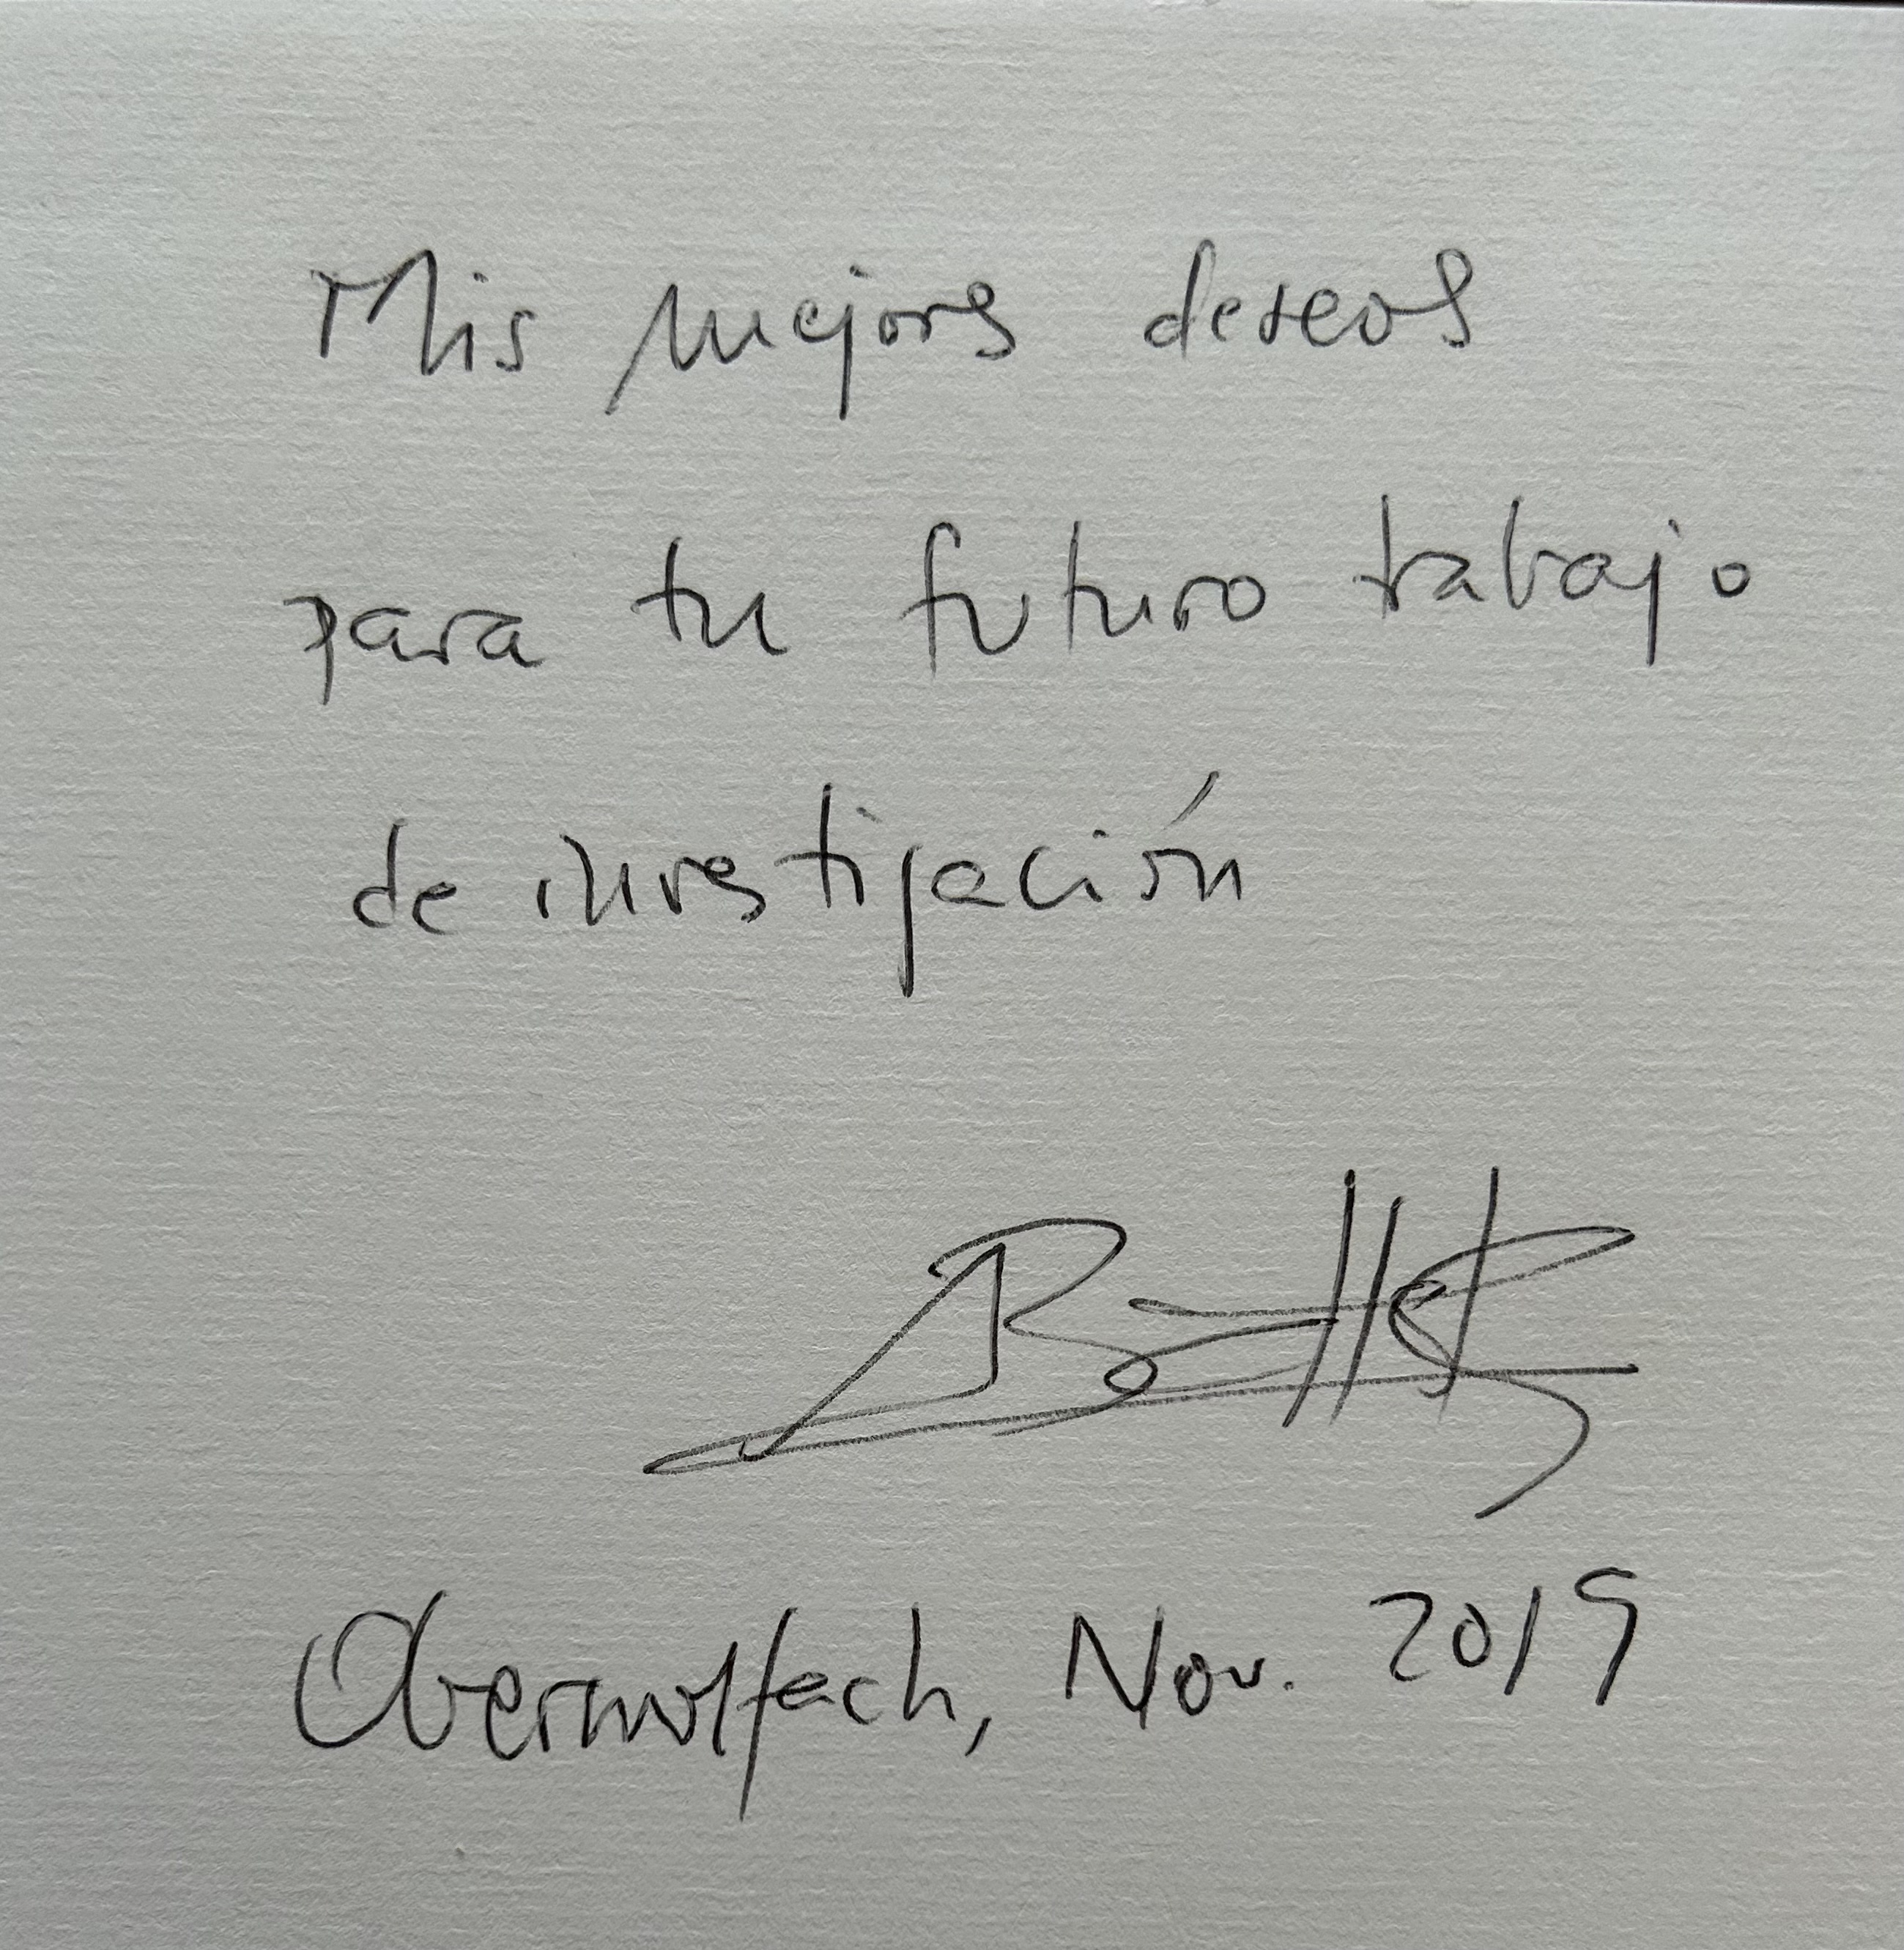 Mis mejores deseos
para tu futuro trabajo
de investigación
Oberwolfach, Nov. 2019